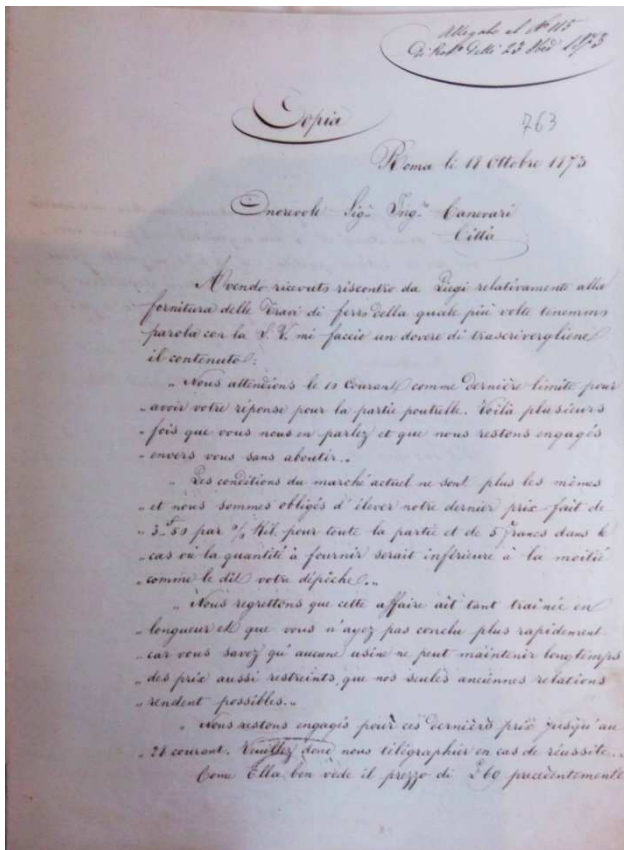 Allegato al N° 115
23 1873
Copia
763
Roma li 18 Ottobre 1873
Onorevole Sigr. Ingre. Canevari
Città
Avendo ricevuto riscontro da Liegi relativamente alla
fornitura delle Travi di ferro della quale più volte tenemmo
parola con la S. V. mi faccio un dovere di trascrivergliene
il contenuto:
„ Nous attendions le 10 Courant comme dernière limite pour
„ avoir votre réponse pour la partie poutrelle. Voilà plusieurs
„ fois que vous nous en parlez et que nous restons engagés
„ envers vous sans aboutir. „
„ Les conditions du marché actuel ne sont plus les mêmes
„ et nous sommes obligés d'élever notre dernier prix fait de
„ 3f 50 par % Kil. pour toute la partie et de 5 francs dans le
„ cas où la quantité à fournir serait inférieure à la moitié
„ comme le dit votre dépêche. „
„ Nous regrettons que cette affaire ait tant trainée en
„ longueur et que vous n'ayez pas conclu plus rapidement
„ car vous savez qu'aucune usine ne peut maintenir longtemps
„ des prix aussi restreints que nos seules anciennes relations
„ rendent possibles. „
„ Nous restons engagés pour ces derniers prix jusqu'au
„ 28 courant. Veuillez donc nous télégraphier en cas de réussite. „
Come Ella ben vede il prezzo di £60 precedentemente